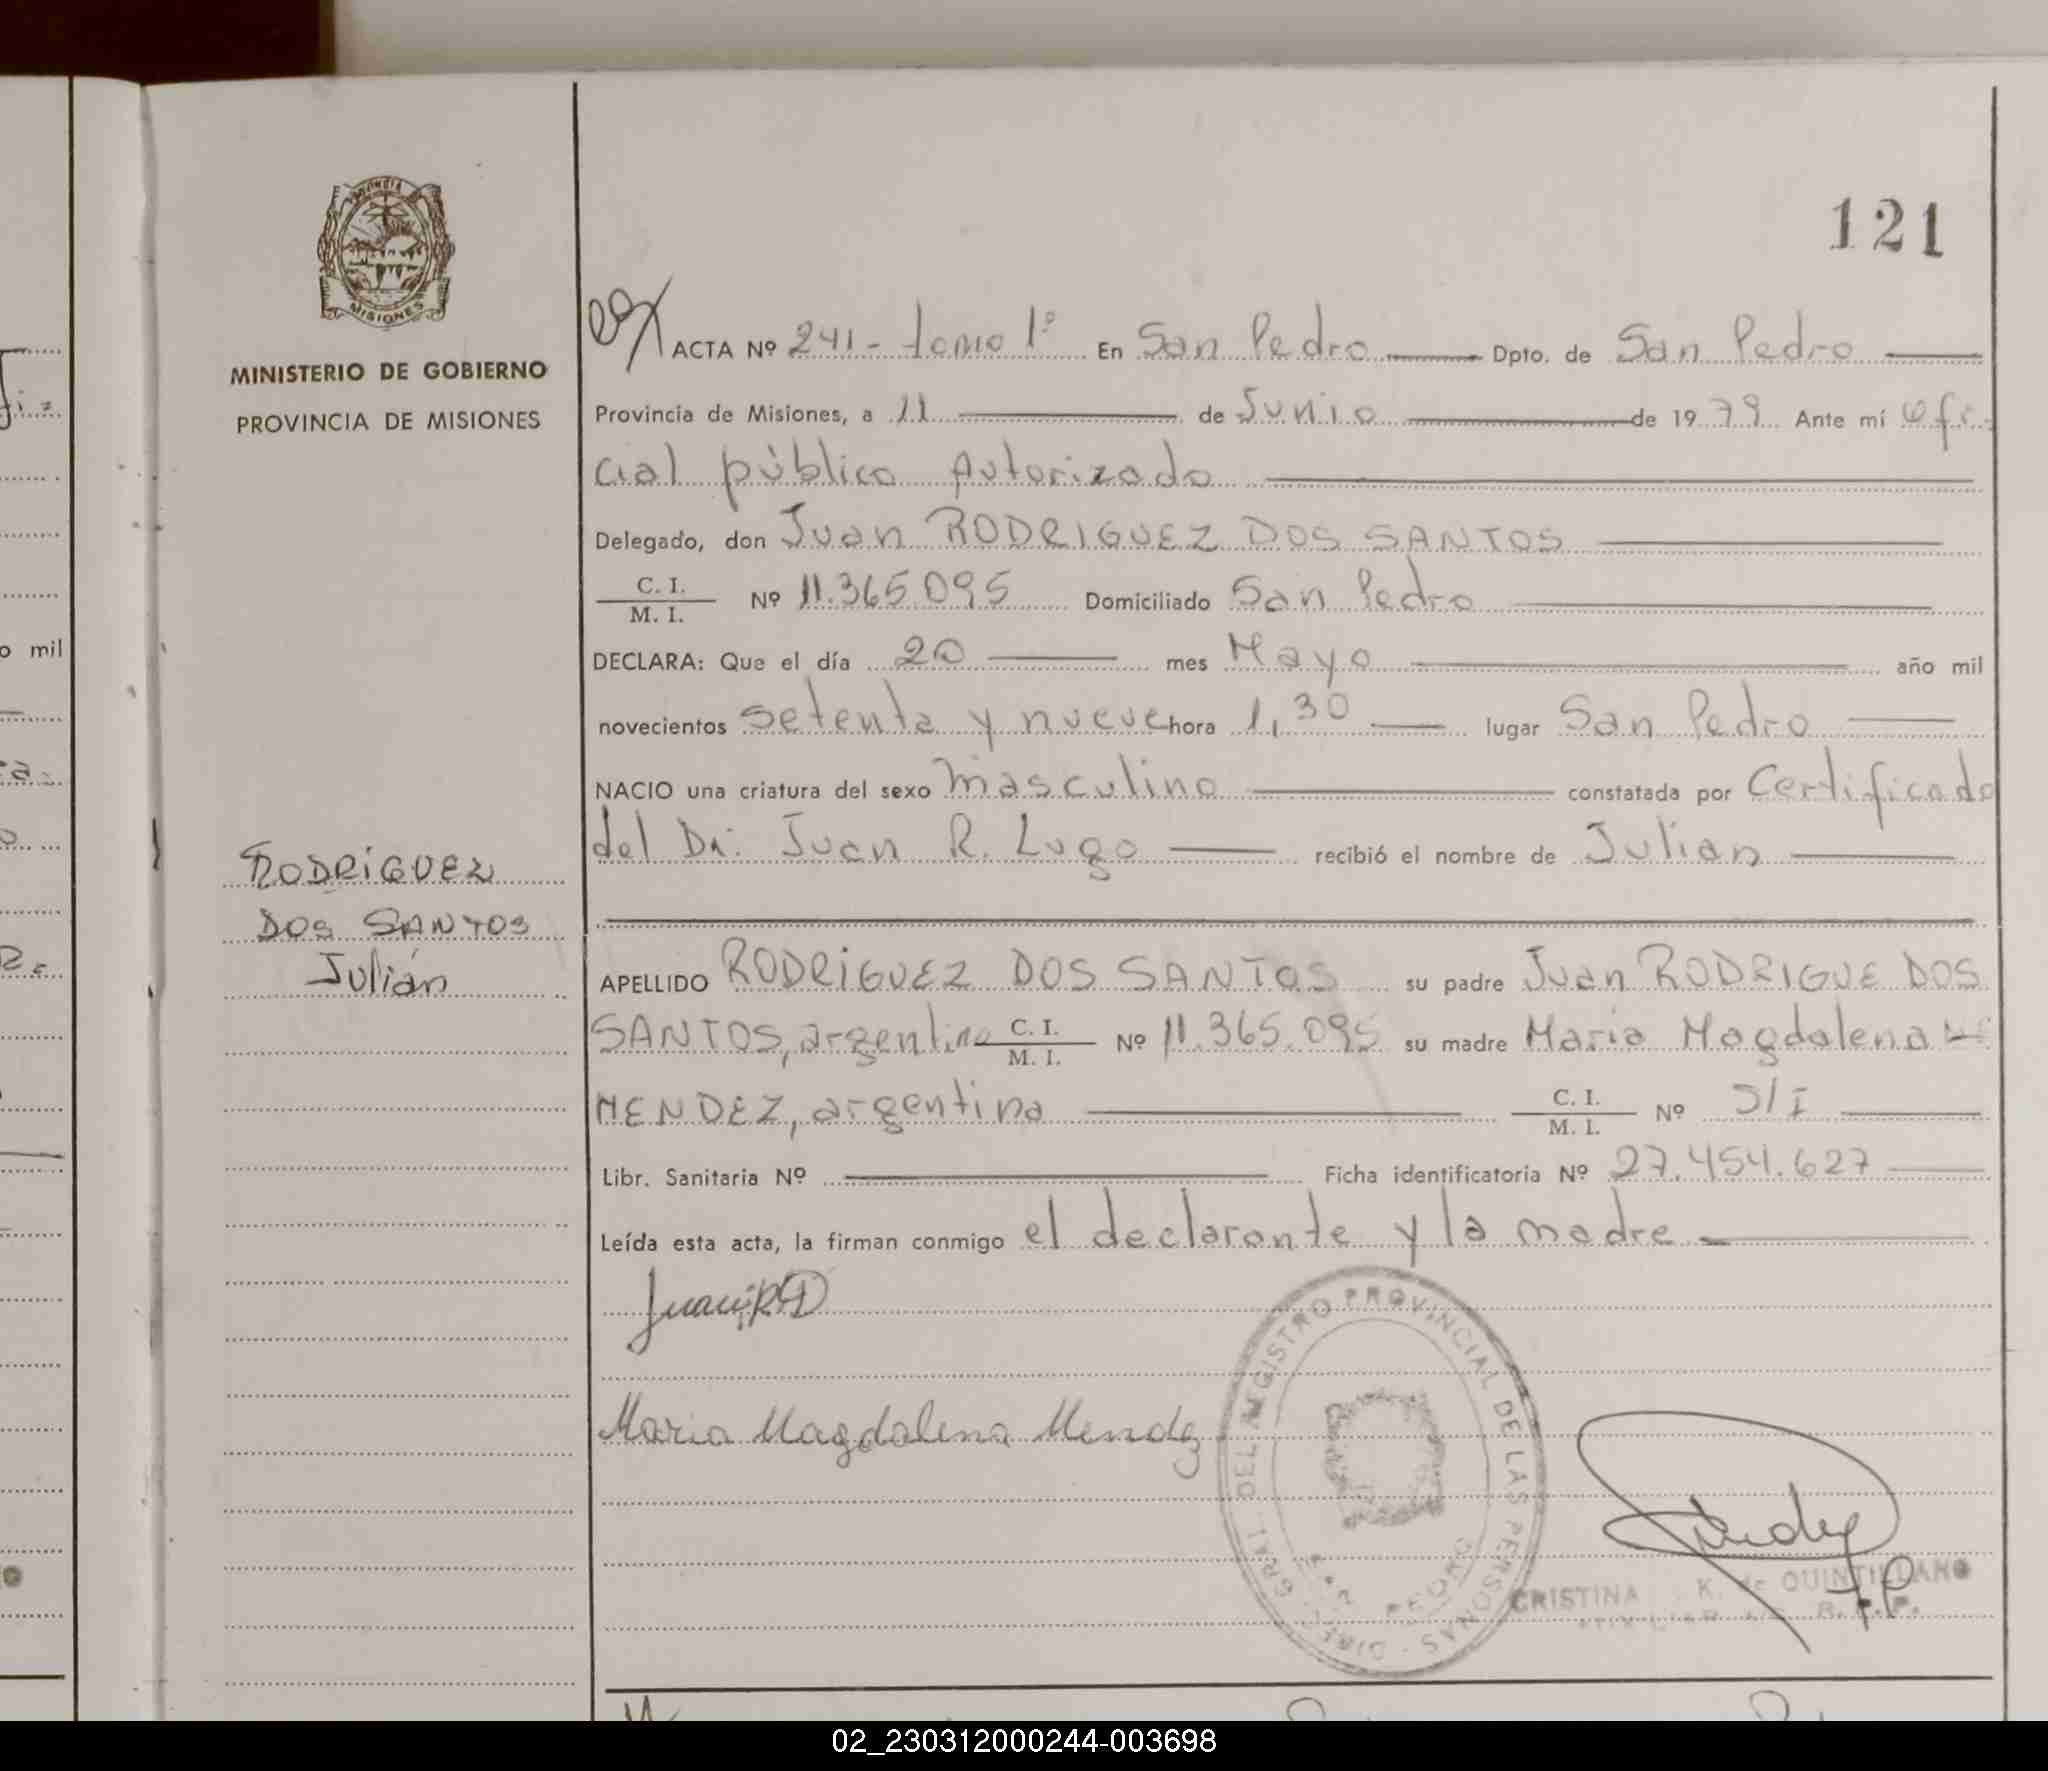 121
PROVINCIA
MISIONES
MINISTERIO DE GOBIERNO
PROVINCIA DE MISIONES
RODRIGUEZ
DOS SANTOS
Julián
ACTA Nº 241 - tomo 1º En San Pedro Dpto. de San Pedro
Provincia de Misiones, a 11 de Junio de 1979 Ante mí Ofi-
cial público Autorizado
Delegado, don Juan RODRIGUEZ DOS SANTOS
C. I.
M. I. Nº 11.365.095 Domiciliado San Pedro
DECLARA: Que el día 20 mes Mayo año mil
novecientos setenta y nueve hora 1,30 lugar San Pedro
NACIO una criatura del sexo masculino constatada por Certificado
del Dr. Juan R. Lugo recibió el nombre de Julian
APELLIDO RODRIGUEZ DOS SANTOS su padre Juan RODRIGUE DOS
SANTOS, argentino C. I. M. I. Nº 11.365.095 su madre Maria Magdalena
MENDEZ, argentina C. I. M. I. Nº S/I
Libr. Sanitaria Nº Ficha identificatoria Nº 27.454.627
Leída esta acta, la firman conmigo el declarante y la madre
Maria Magdalena Mendez
DIREC. GRAL. DEL REGISTRO PROVINCIAL DE LAS PERSONAS
PEDRO
CRISTINA K. de QUINTILLANO
o mil
02_230312000244-003698